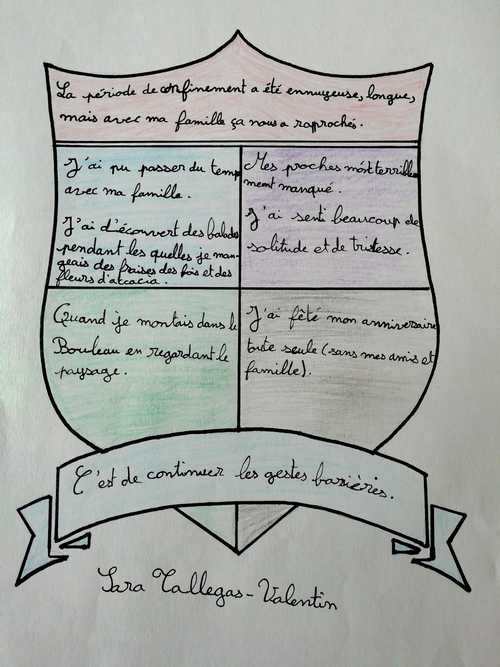 La période de confinement a été ennuyeuse, longue,
mais avec ma famille ça nous a raprochés.
J'ai pu passer du temps
avec ma famille.
J'ai d'écouvert des balades
pendant les quelles je man-
geais des fraises des bois et des
fleurs d'accacia.
Mes proches m'ont terrible-
ment manqué.
J'ai senti beaucoup de
solitude et de tristesse.
Quand je montais dans le
Bouleau en regardant le
paysage.
J'ai fêté mon anniversaire
toute seule (sans mes amis et
famille).
C'est de continuer les gestes barières.
Sara Tallegas-Valentin